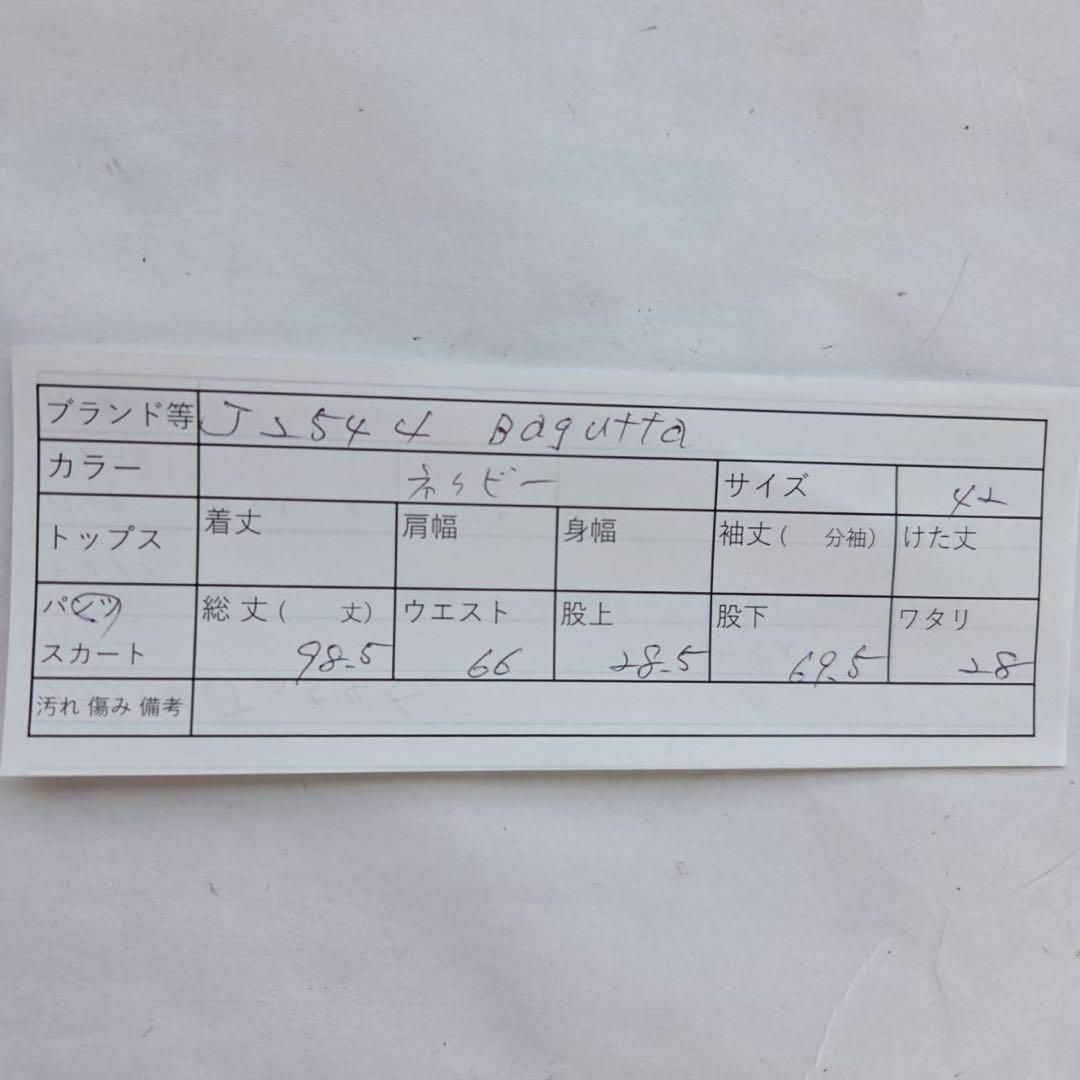 ブランド等 J2544 Bagutta
カラー ネイビー サイズ 42
トップス 着丈 肩幅 身幅 袖丈( 分袖) けた丈
パンツ 総丈( 丈) ウエスト 股上 股下 ワタリ
スカート 98.5 66 28.5 69.5 28
汚れ 傷み 備考